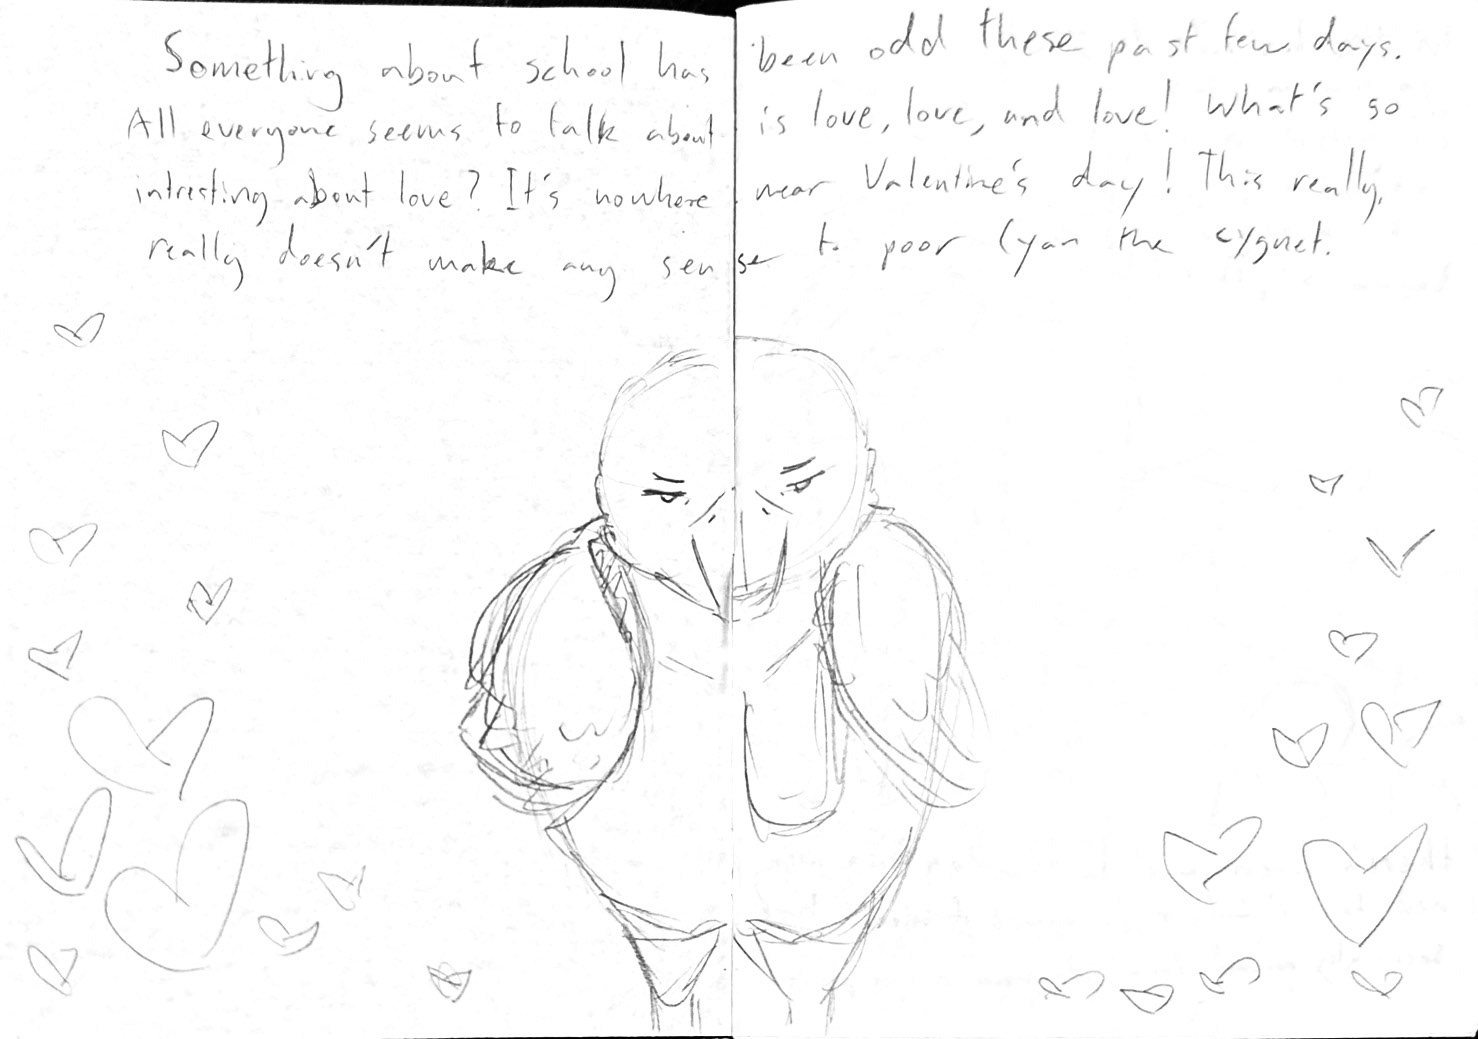 Something about school has been odd these past few days.
All everyone seems to talk about is love, love, and love! What's so
intresting about love? It's nowhere near Valentine's day! This really,
really doesn't make any sense to poor Cyan the cygnet.